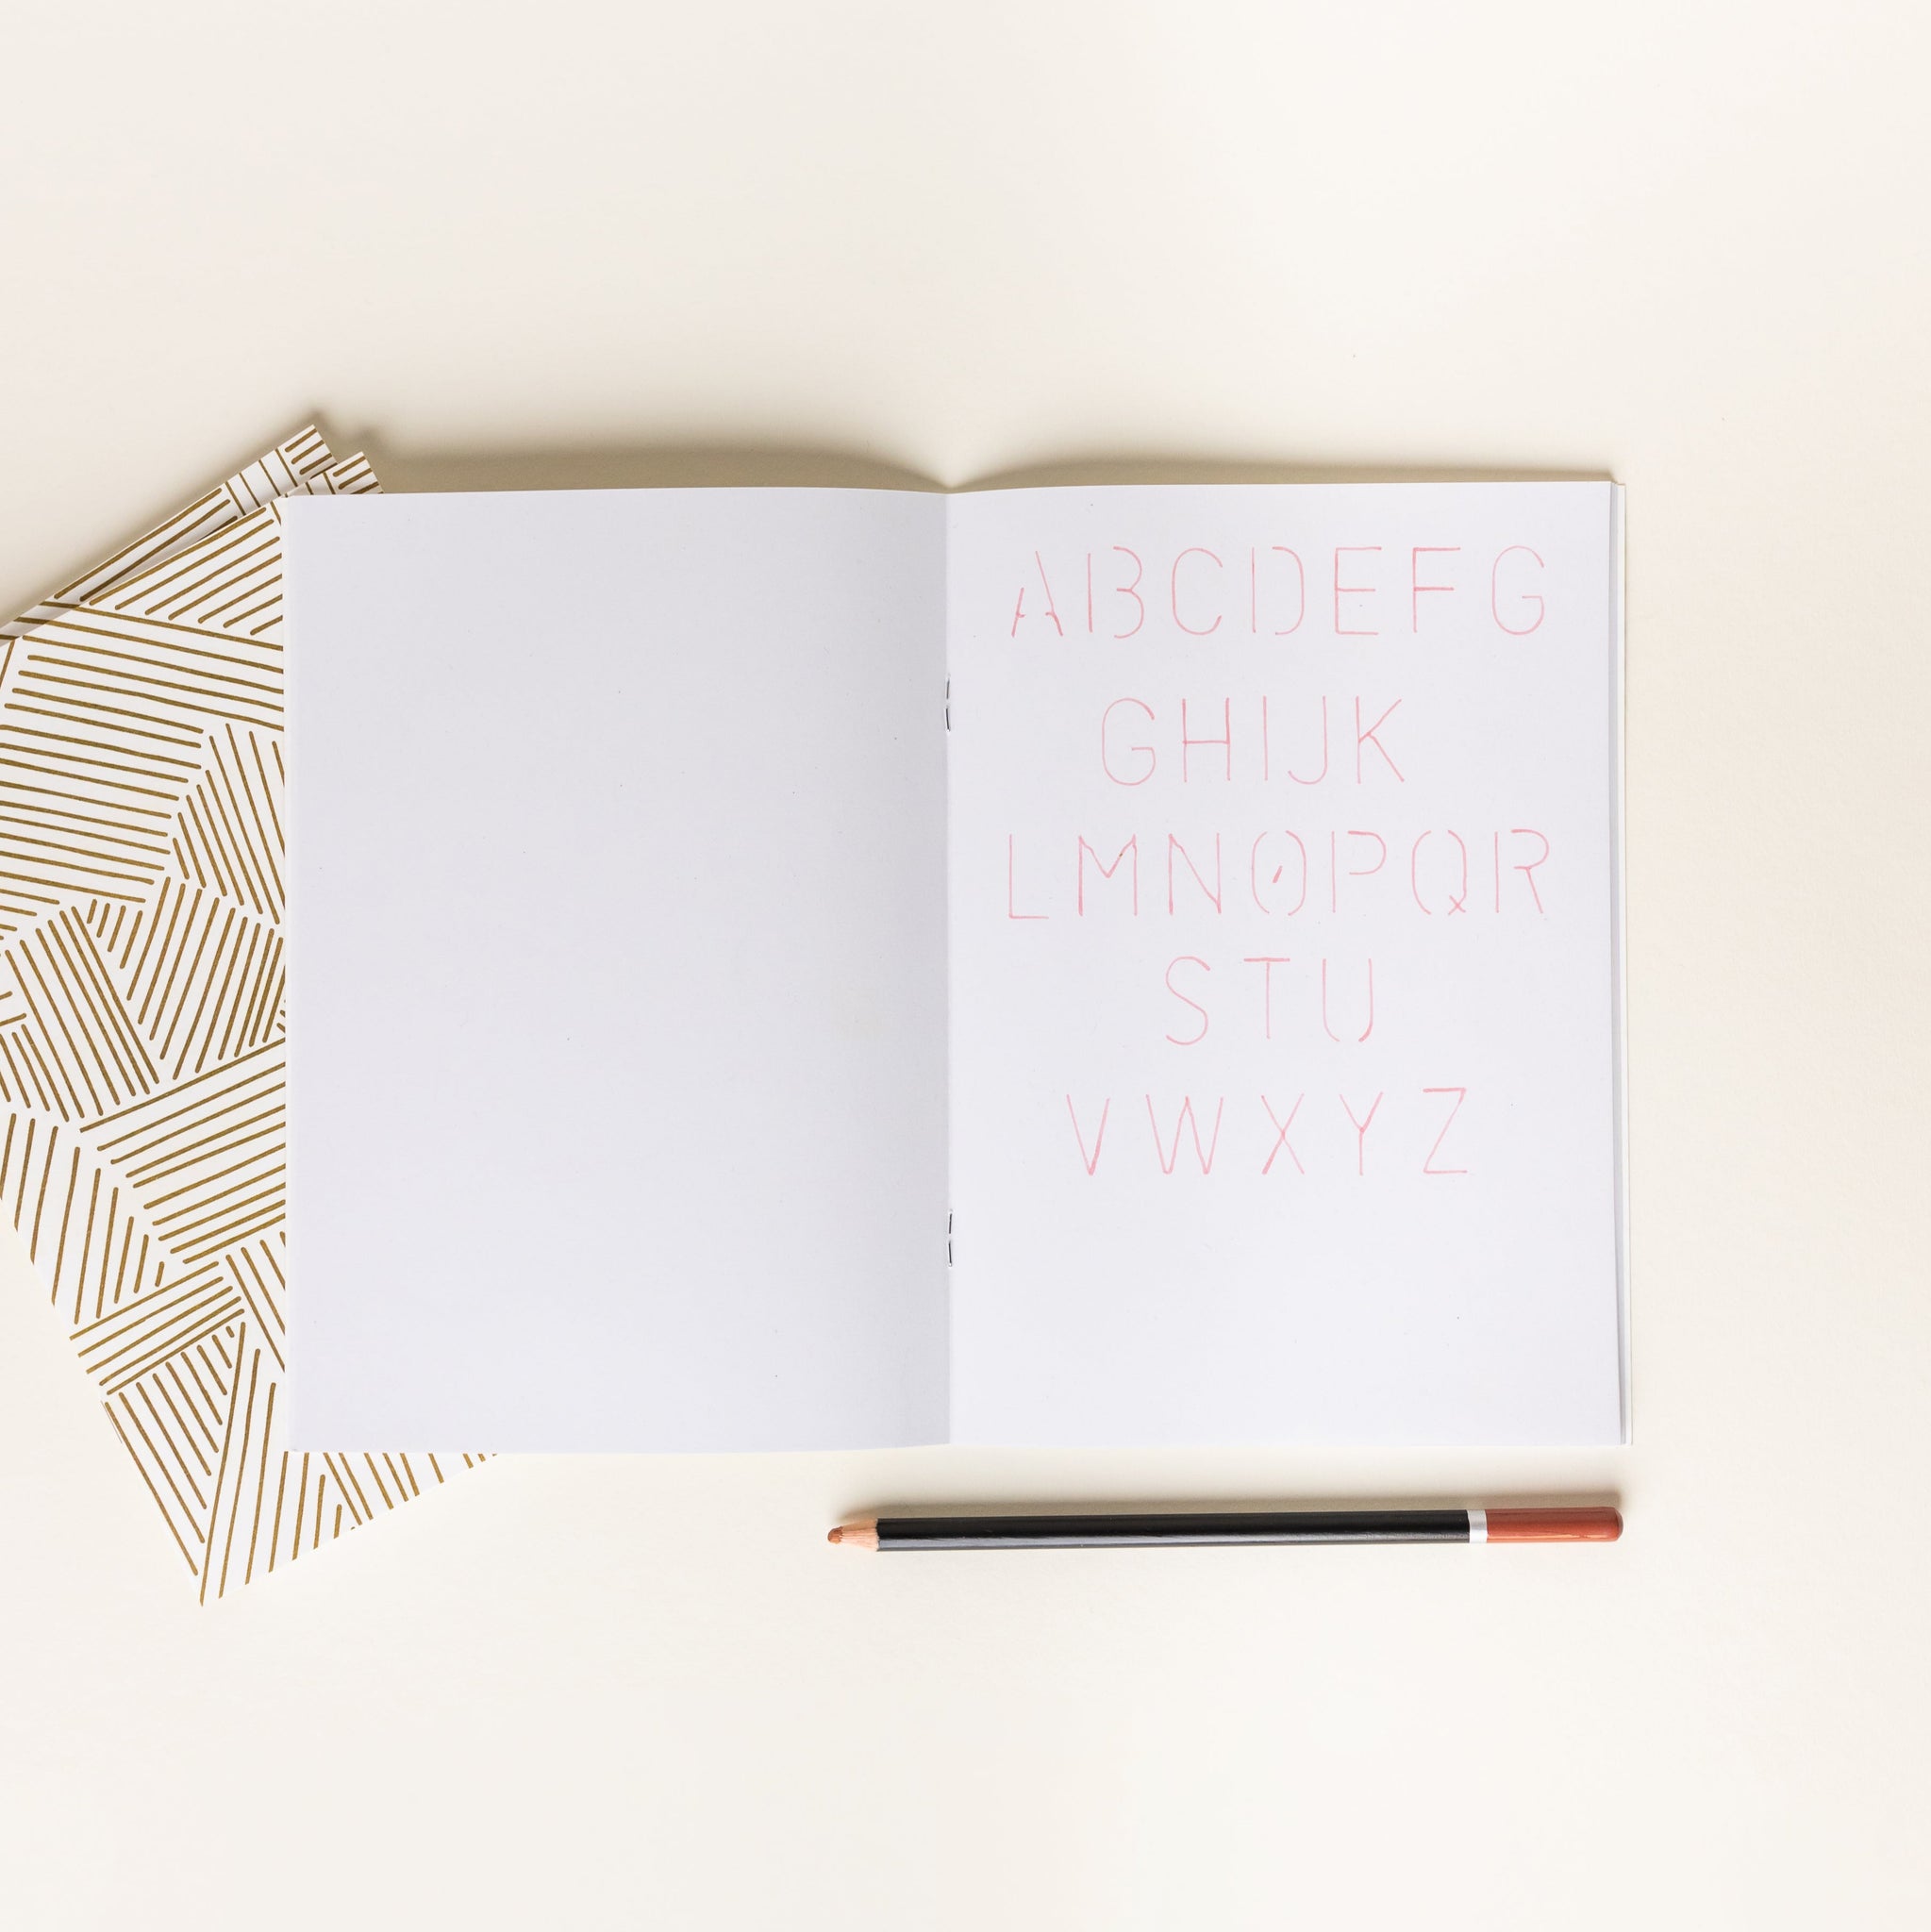 ABCDEFG
GHIJK
LMNOPQR
STU
VWXYZ